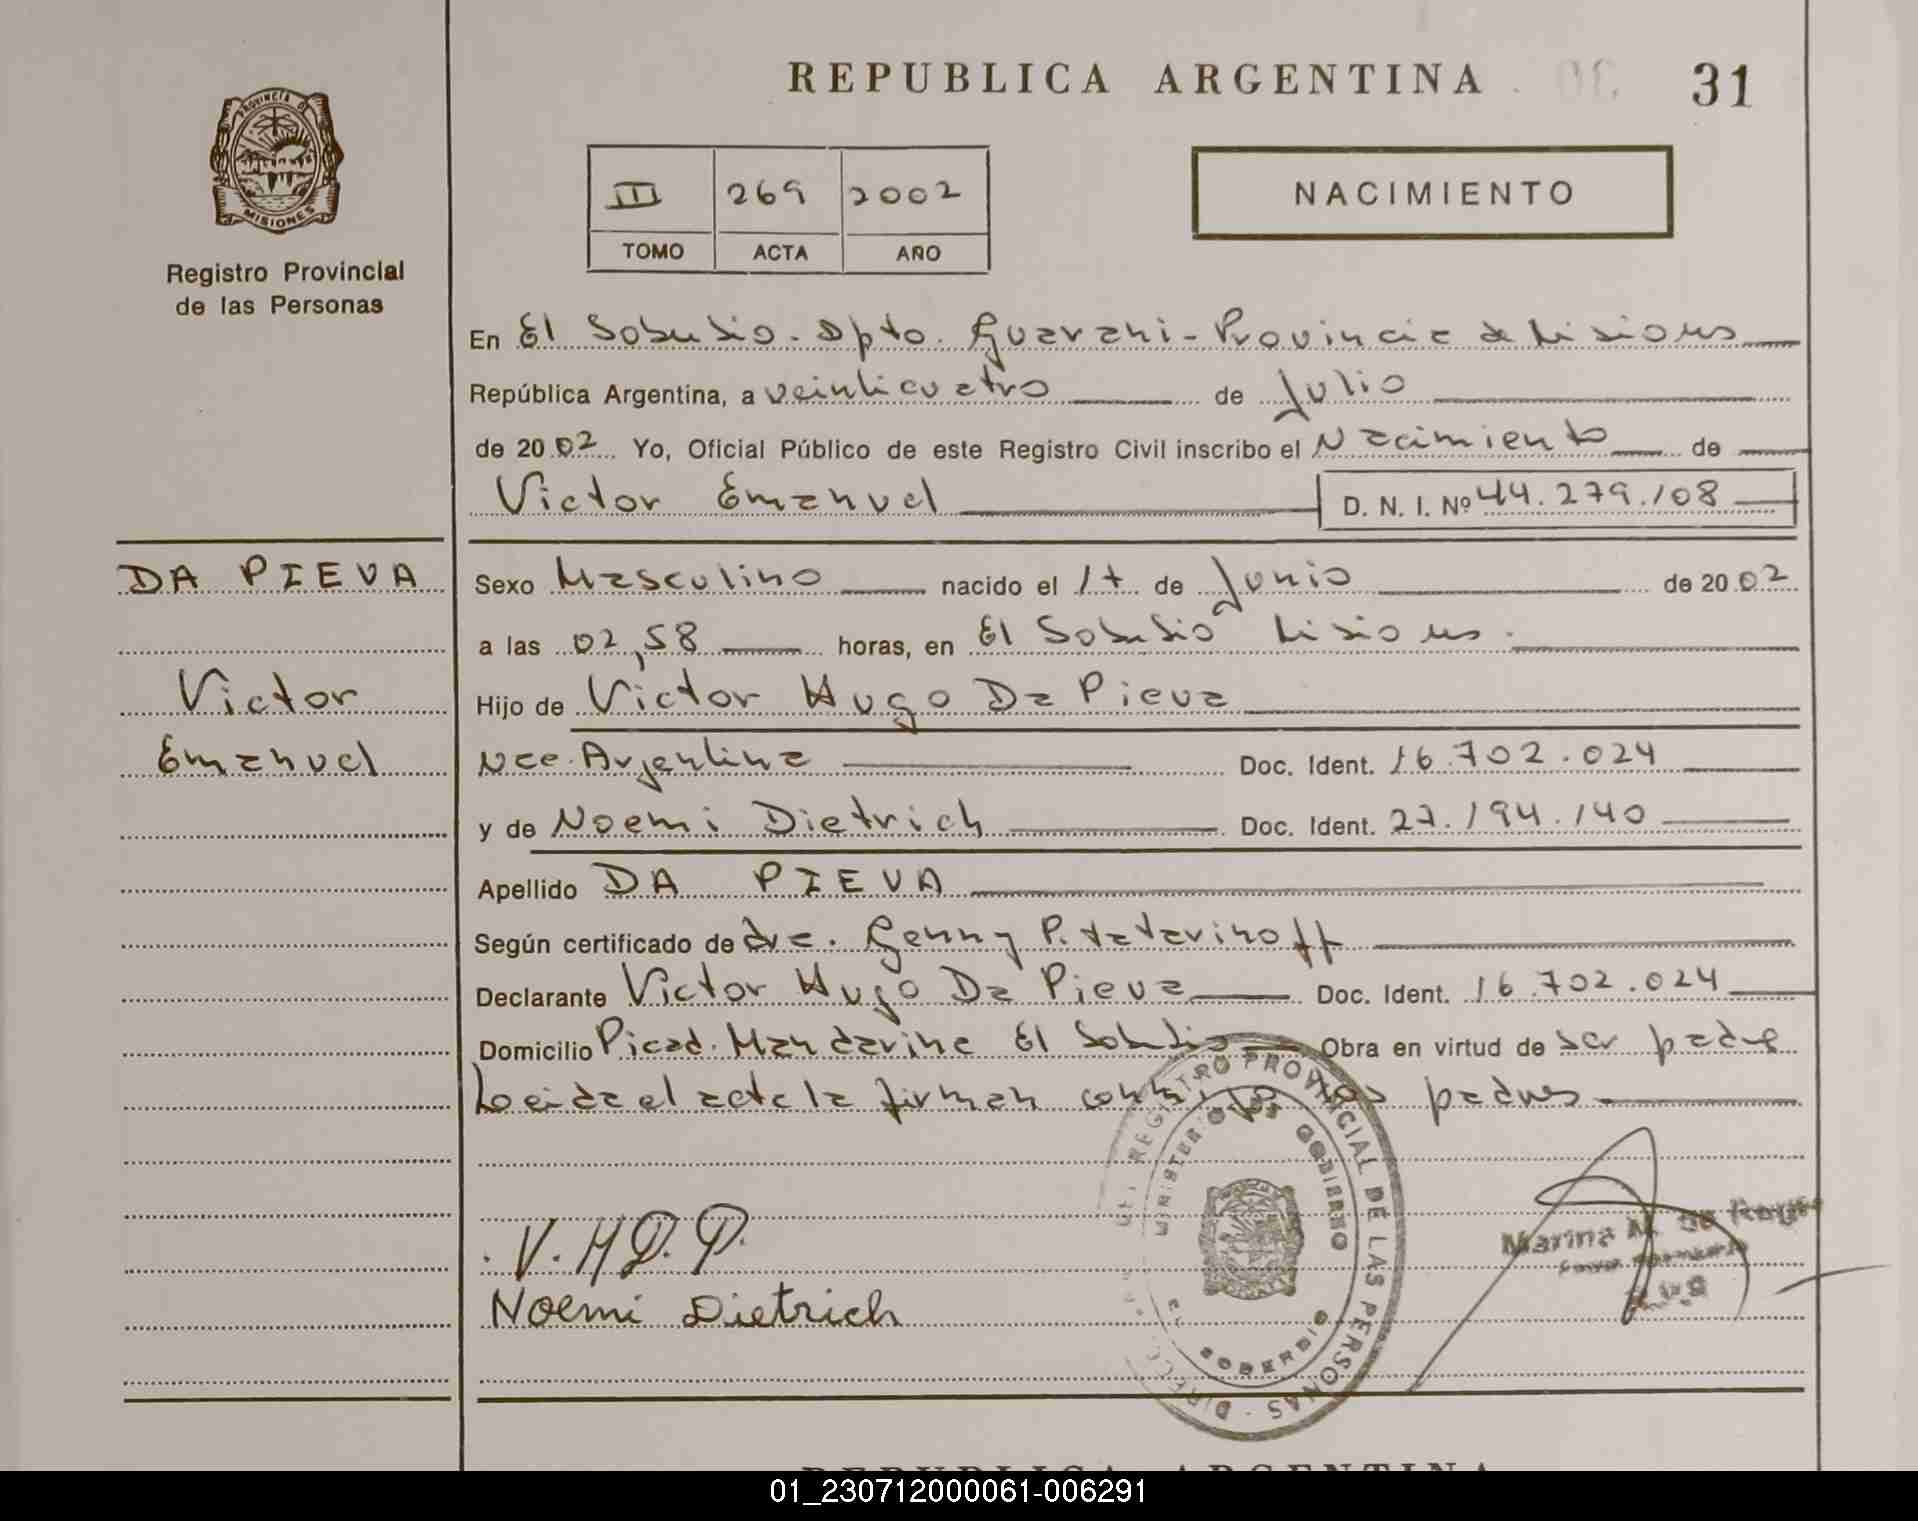 REPUBLICA ARGENTINA
31
PROVINCIA DE
MISIONES
Registro Provincial
de las Personas
III 269 2002
TOMO ACTA AÑO
NACIMIENTO
En El Soberbio - Dpto. Guarani - Provincia de Misiones
República Argentina, a veinticuatro de Julio
de 2002 Yo, Oficial Público de este Registro Civil inscribo el Nacimiento de
Victor Emanuel D. N. I. Nº 44.279.108
DA PIEVA
Victor
Emanuel
Sexo Masculino nacido el 17 de Junio de 2002
a las 02,58 horas, en El Soberbio Misiones.
Hijo de Victor Hugo Da Pieva
Nac. Argentina Doc. Ident. 16.702.024
y de Noemi Dietrich Doc. Ident. 27.194.140
Apellido DA PIEVA
Según certificado de dra. Genny P. tatarinoff
Declarante Victor Hugo Da Pieva Doc. Ident. 16.702.024
Domicilio Picad. Mandarina El Soberbio Obra en virtud de ser padre
Leida el acta la firman conmigo los padres
V.H.D.P.
Noemi Dietrich
REGISTRO PROVINCIAL DE LAS PERSONAS
MINISTERIO DE GOBIERNO
SOBERBIO
Marina M.
REPUBLICA ARGENTINA
01_230712000061-006291